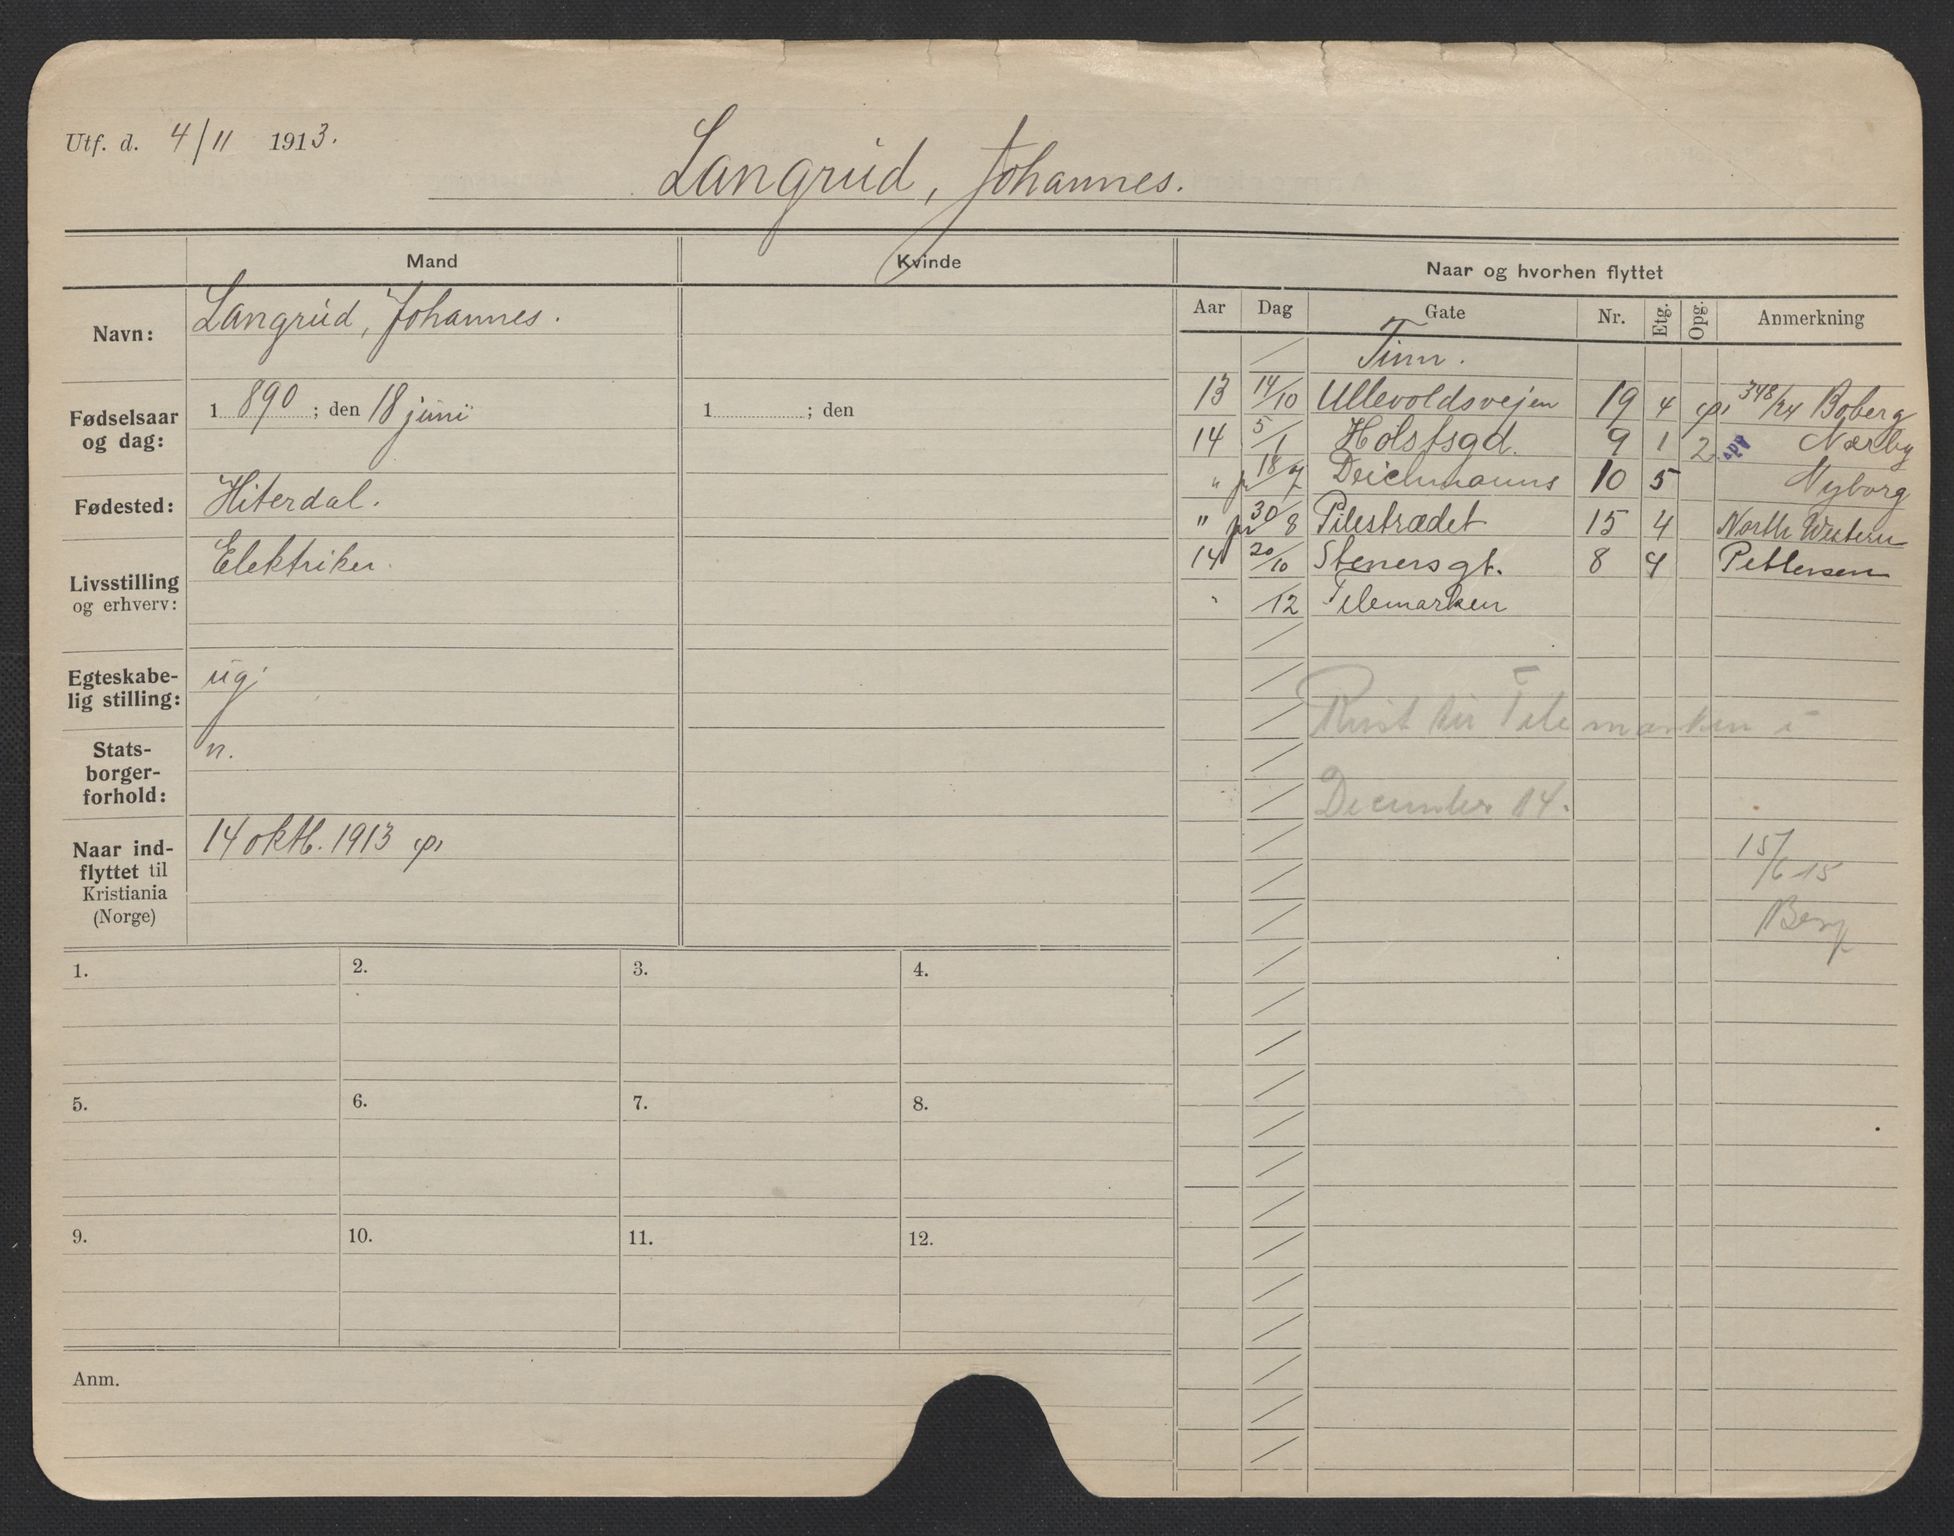 Utf. d. 4/11 1913.
Langrud, Johannes.
Mand
Kvinde
Naar og hvorhen flyttet
Navn: Langrud, Johannes.
Fødselsaar og dag: 1890; den 18 juni
1 ; den
Fødested: Hiterdal.
Livsstilling og erhverv: Elektriker.
Egteskabe-
lig stilling: ug.
Stats-
borger-
forhold: n.
Naar ind-
flyttet til
Kristiania
(Norge)
14 oktb. 1913
Aar Dag Gate Nr. Etg. Opg. Anmerkning
Tinn.
13 14/10 Ullevoldsvejen 19 4 348/24 Boberg
14 5/1 Holstsgd. 9 1 2 Nærby
" 18/7 Deichmanns 10 5 Nyborg
" 30/8 Pilestrædet 15 4 North Western
14 20/10 Stenersgt. 8 4 Pettersen
" /12 Telemarken
Reist til Telemarken i
December 14.
15/6 15
Berg
1. 2. 3. 4.
5. 6. 7. 8.
9. 10. 11. 12.
Anm.